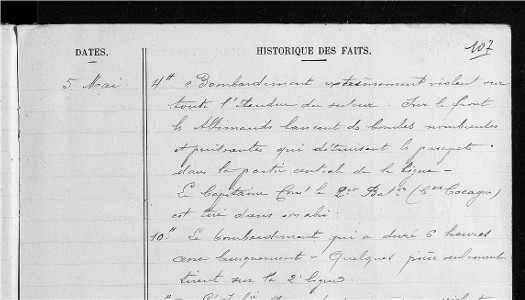 107
DATES. HISTORIQUE DES FAITS.
5 Mai 4h Bombardement extrêmement violent sur
toute l'étendue du secteur. Sur le front
les Allemands lancent des bombes nombreuses
et puissantes qui détruisent le parapet
dans la partie centrale de la ligne -
Le Capitaine Comt le 2e Baton (Cne Cocagne)
est tué dans abri.
10h Le bombardement qui a duré 6 heures
cesse brusquement - Quelques pièces seulement
tirent sur la 2e ligne.